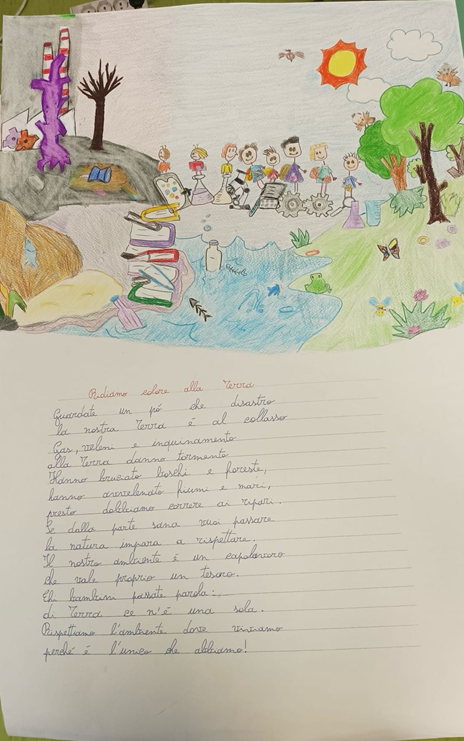 Ridiamo colore alla Terra
Guardate un pó che disastro
la nostra Terra è al collasso
Gas, veleni e inquinamento
alla Terra danno tormento
Hanno bruciato boschi e foreste,
hanno avvelenato fiumi e mari,
presto dobbiamo correre ai ripari.
Se dalla parte sana vuoi passare
la natura impara a rispettare.
Il nostro ambiente è un capolavoro
che vale proprio un tesoro.
Ehi bambini passate parola:
di Terra ce n'è una sola.
Rispettiamo l'ambiente dove viviamo
perché è l'unico che abbiamo!